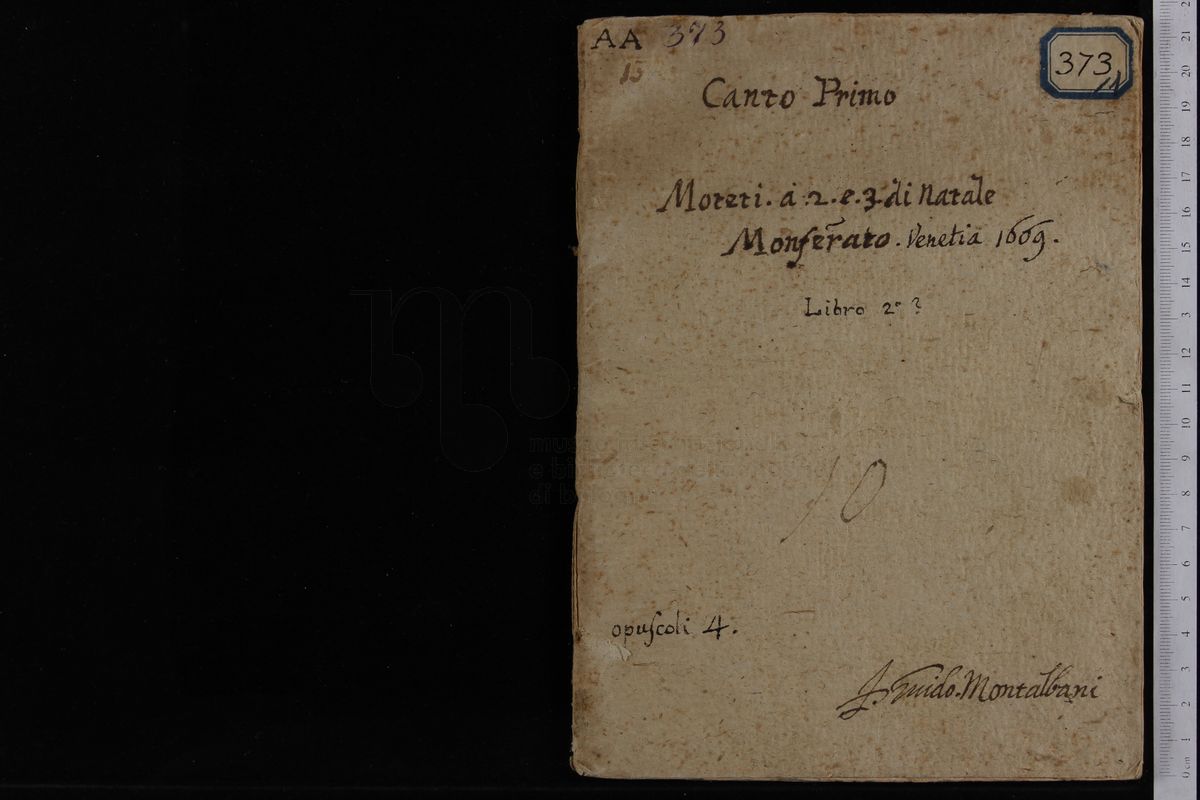 AA 373
15
373
11
Canto Primo
Moteti. á .2. e. 3. di Natale
Monferrato. Venetia 1669.
Libro 2° ?
10
opuſcoli 4.
Guido. Montalbani
museo
e biblioteca
di bologna
0 cm 1 2 3 4 5 6 7 8 9 10 11 12 3 14 15 16 17 18 19 20 21